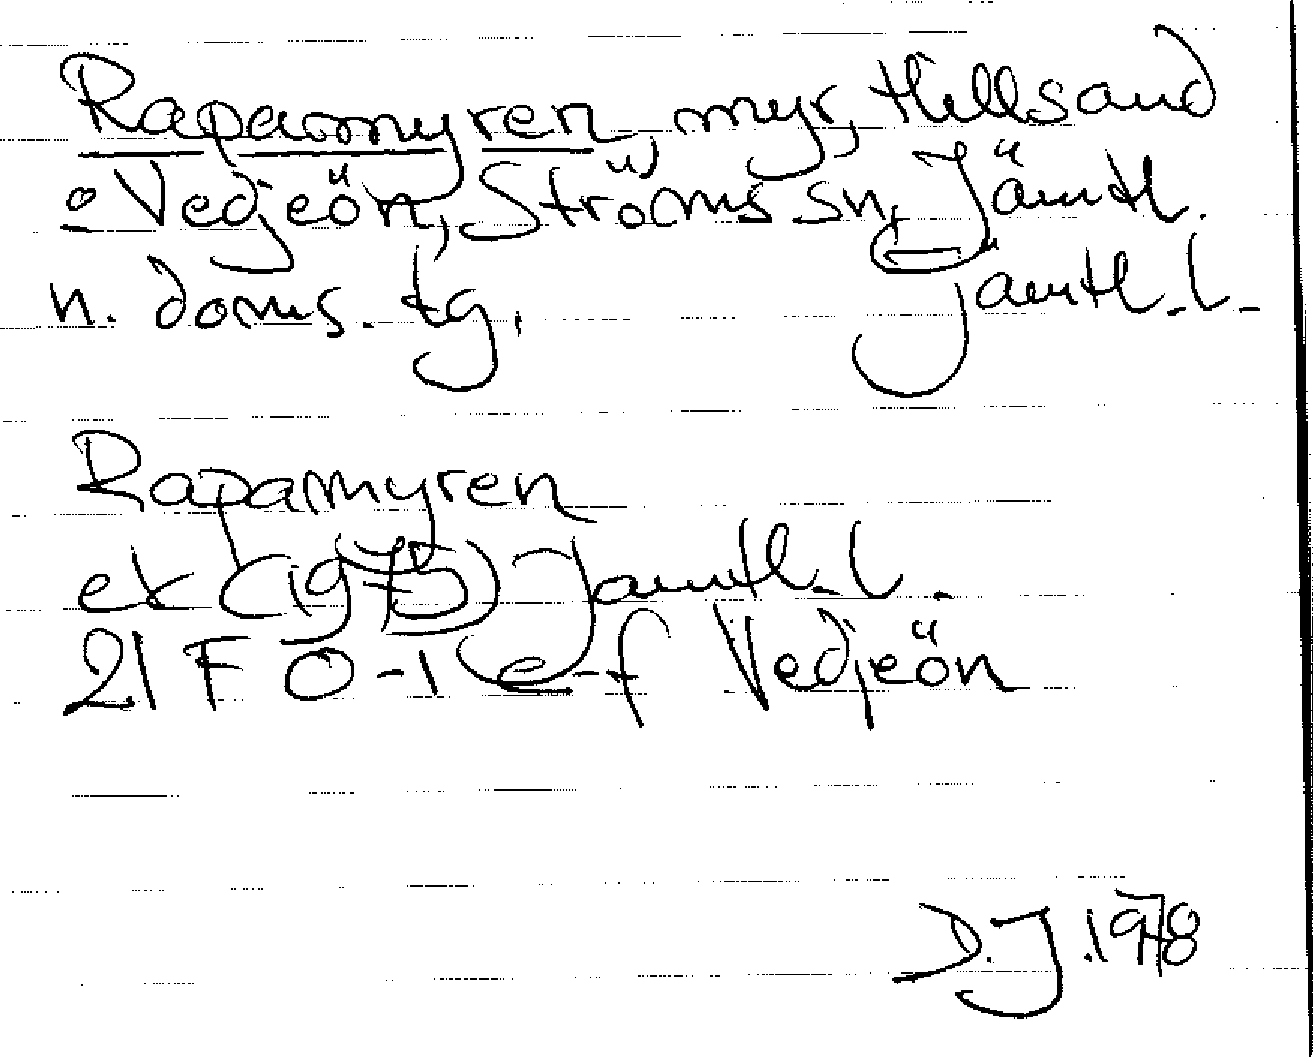 Rapamyren, myr, Hillsand
o Vedjeön, Ströms sn, Jämtl.
n. doms. tg. Jämtl. l.
Rapamyren
ek (1975) Jämtl. l.
21 F 0-1 e-f Vedjeön
D.J. 1978